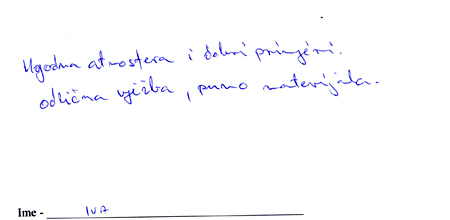 Ugodna atmosfera i dobri primjeri.
odlična vježba, puno materijala.
Ime - IVA